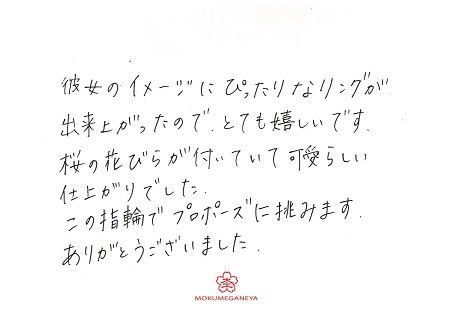 彼女のイメージにぴったりなリングが
出来上がったので、とても嬉しいです.
桜の花びらが付いていて可愛らしい
仕上がりでした.
この指輪でプロポーズに挑みます.
ありがとうございました.
MOKUMEGANEYA